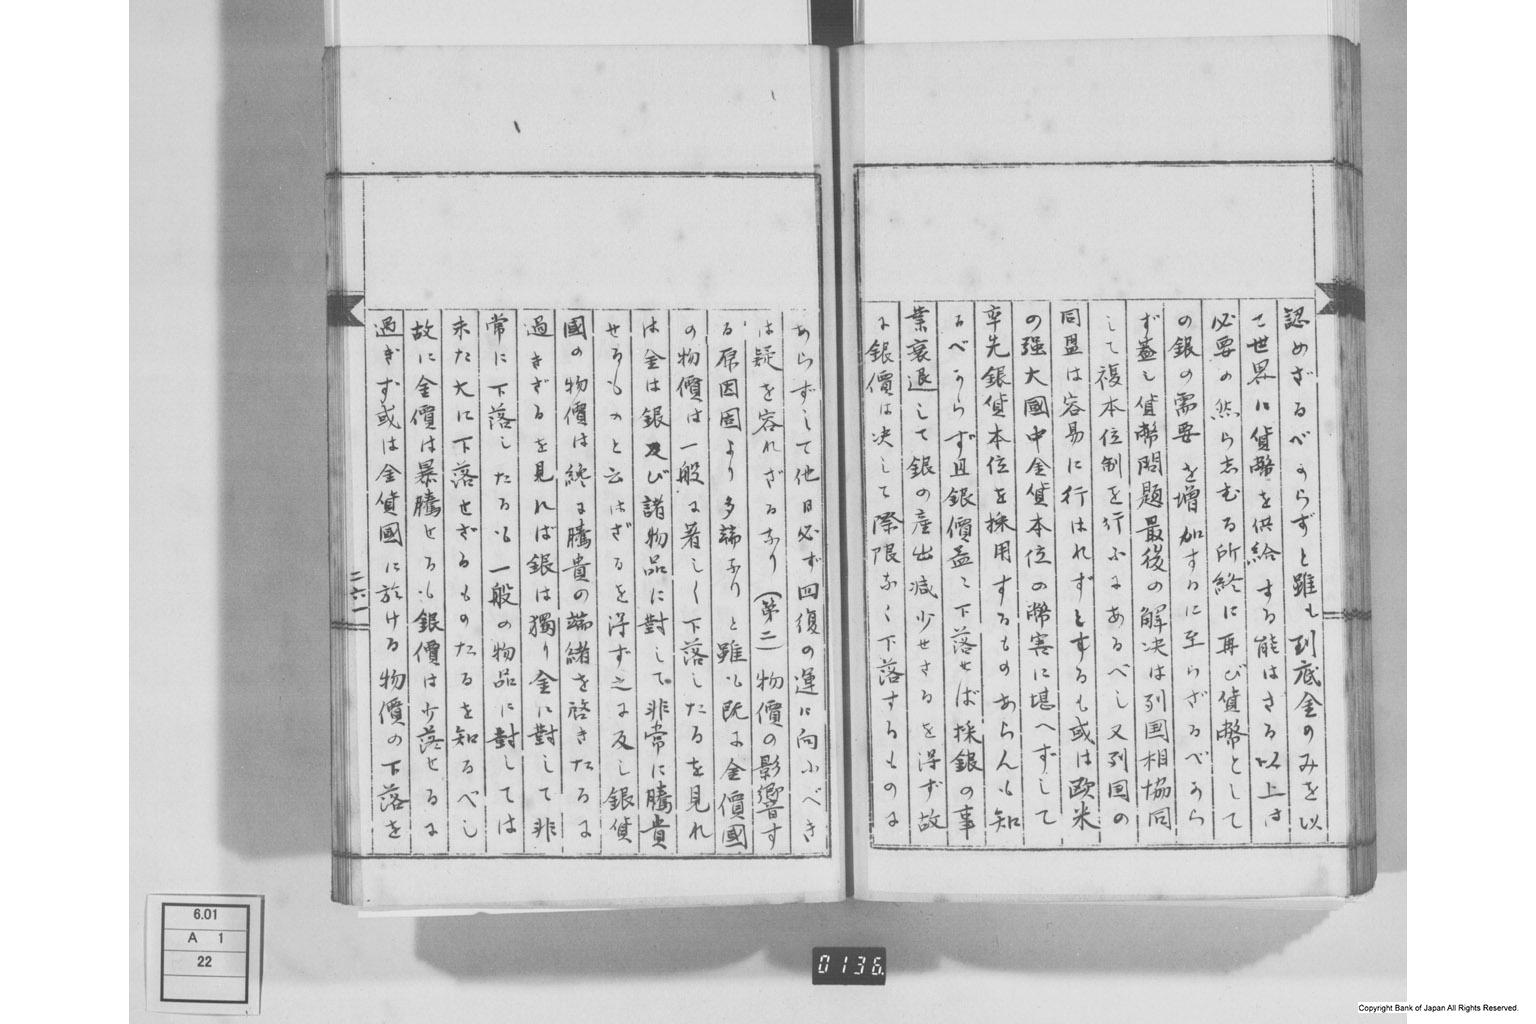 認めざるべからずと雖も到底金のみを以
て世界に貨幣を供給する能はざる以上は
必要の然らしむる所終に再び貨幣として
の銀の需要を増加するに至らざるべから
ず蓋し貨幣問題最後の解决は列国相協同
して複本位制を行ふにあるべし又列国の
同盟は容易に行はれずとするも或は歐米
の强大國中金貨本位の幣害に堪へずして
率先銀貨本位を採用するものあらんも知
るべからず且銀價益々下落せば採銀の事
業衰退して銀の産出减少せざるを得ず故
に銀價は决して際限なく下落するものに
あらずして他日必ず回復の運に向ふべき
は疑を容れざるなり(第二)物價の影響す
る原因固より多端なりと雖も既に金價國
の物價は一般に著しく下落したるを見れ
は金は銀及び諸物品に對して非常に騰貴
せるものと云はざるを得ず之に反し銀貨
國の物價は終に騰貴の端緒を啓きたるに
過きざるを見れば銀は獨り金に對して非
常に下落したるも一般の物品に對しては
未た大に下落せざるものたるを知るべし
故に金價は暴騰せるも銀價は少落せるに
過ぎず或は金貨國に於ける物價の下落を
二六一
6.01
A 1
22
0136
Copyright Bank of Japan All Rights Reserved.